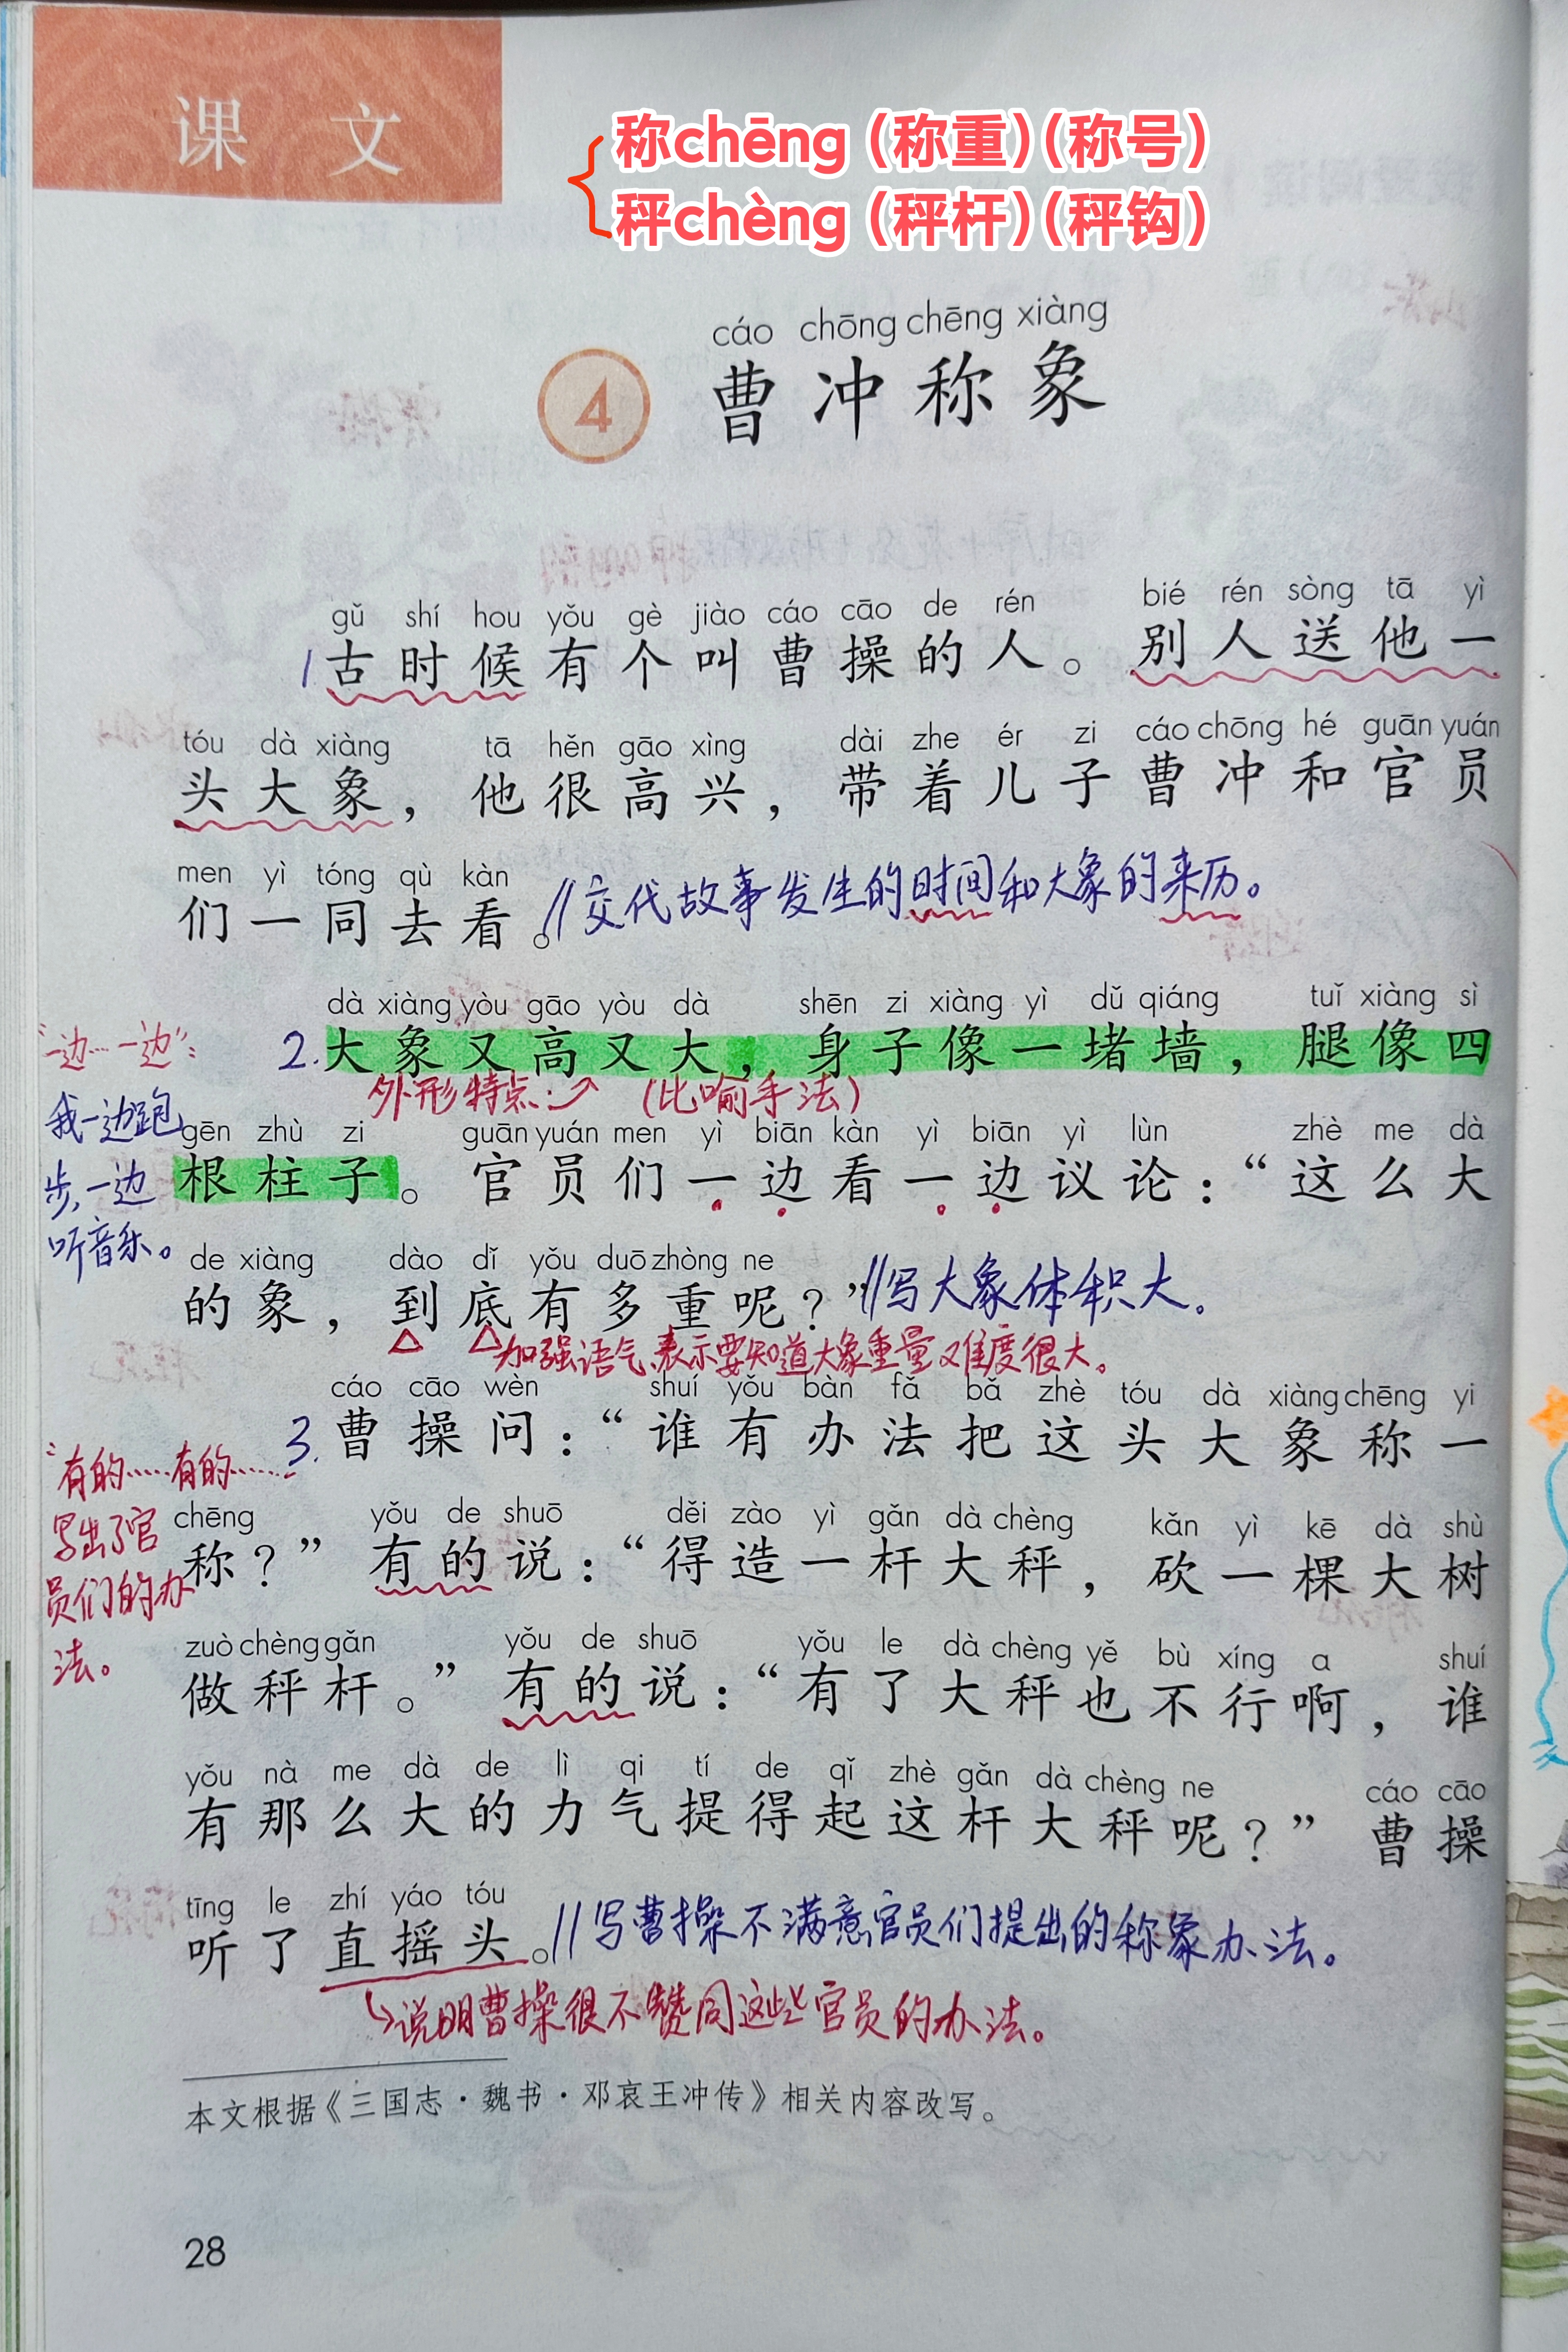 课 文
称chēng（称重）（称号）
秤chèng（秤杆）（秤钩）
cáo chōng chēng xiàng
4 曹冲称象
gǔ shí hou yǒu gè jiào cáo cāo de rén bié rén sòng tā yì
1古时候有个叫曹操的人。别人送他一
tóu dà xiàng tā hěn gāo xìng dài zhe ér zi cáo chōng hé guān yuán
头大象，他很高兴，带着儿子曹冲和官员
men yì tóng qù kàn
们一同去看。//交代故事发生的时间和大象的来历。
dà xiàng yòu gāo yòu dà shēn zi xiàng yì dǔ qiáng tuǐ xiàng sì
2.大象又高又大，身子像一堵墙，腿像四
外形特点 （比喻手法）
gēn zhù zi guān yuán men yì biān kàn yì biān yì lùn zhè me dà
根柱子。官员们一边看一边议论：“这么大
de xiàng dào dǐ yǒu duō zhòng ne
的象，到底有多重呢？”//写大象体积大。
加强语气，表示要知道大象重量难度很大。
“一边…一边”：
我一边跑
步，一边
听音乐。
cáo cāo wèn shuí yǒu bàn fǎ bǎ zhè tóu dà xiàng chēng yi
3.曹操问：“谁有办法把这头大象称一
chēng yǒu de shuō děi zào yì gǎn dà chèng kǎn yì kē dà shù
称？”有的说：“得造一杆大秤，砍一棵大树
zuò chèng gǎn yǒu de shuō yǒu le dà chèng yě bù xíng a shuí
做秤杆。”有的说：“有了大秤也不行啊，谁
yǒu nà me dà de lì qi tí de qǐ zhè gǎn dà chèng ne cáo cāo
有那么大的力气提得起这杆大秤呢？”曹操
tīng le zhí yáo tóu
听了直摇头。//写曹操不满意官员们提出的称象办法。
说明曹操很不赞同这些官员的办法。
“有的……有的……”
写出了官
员们的办
法。
本文根据《三国志·魏书·邓哀王冲传》相关内容改写。
28